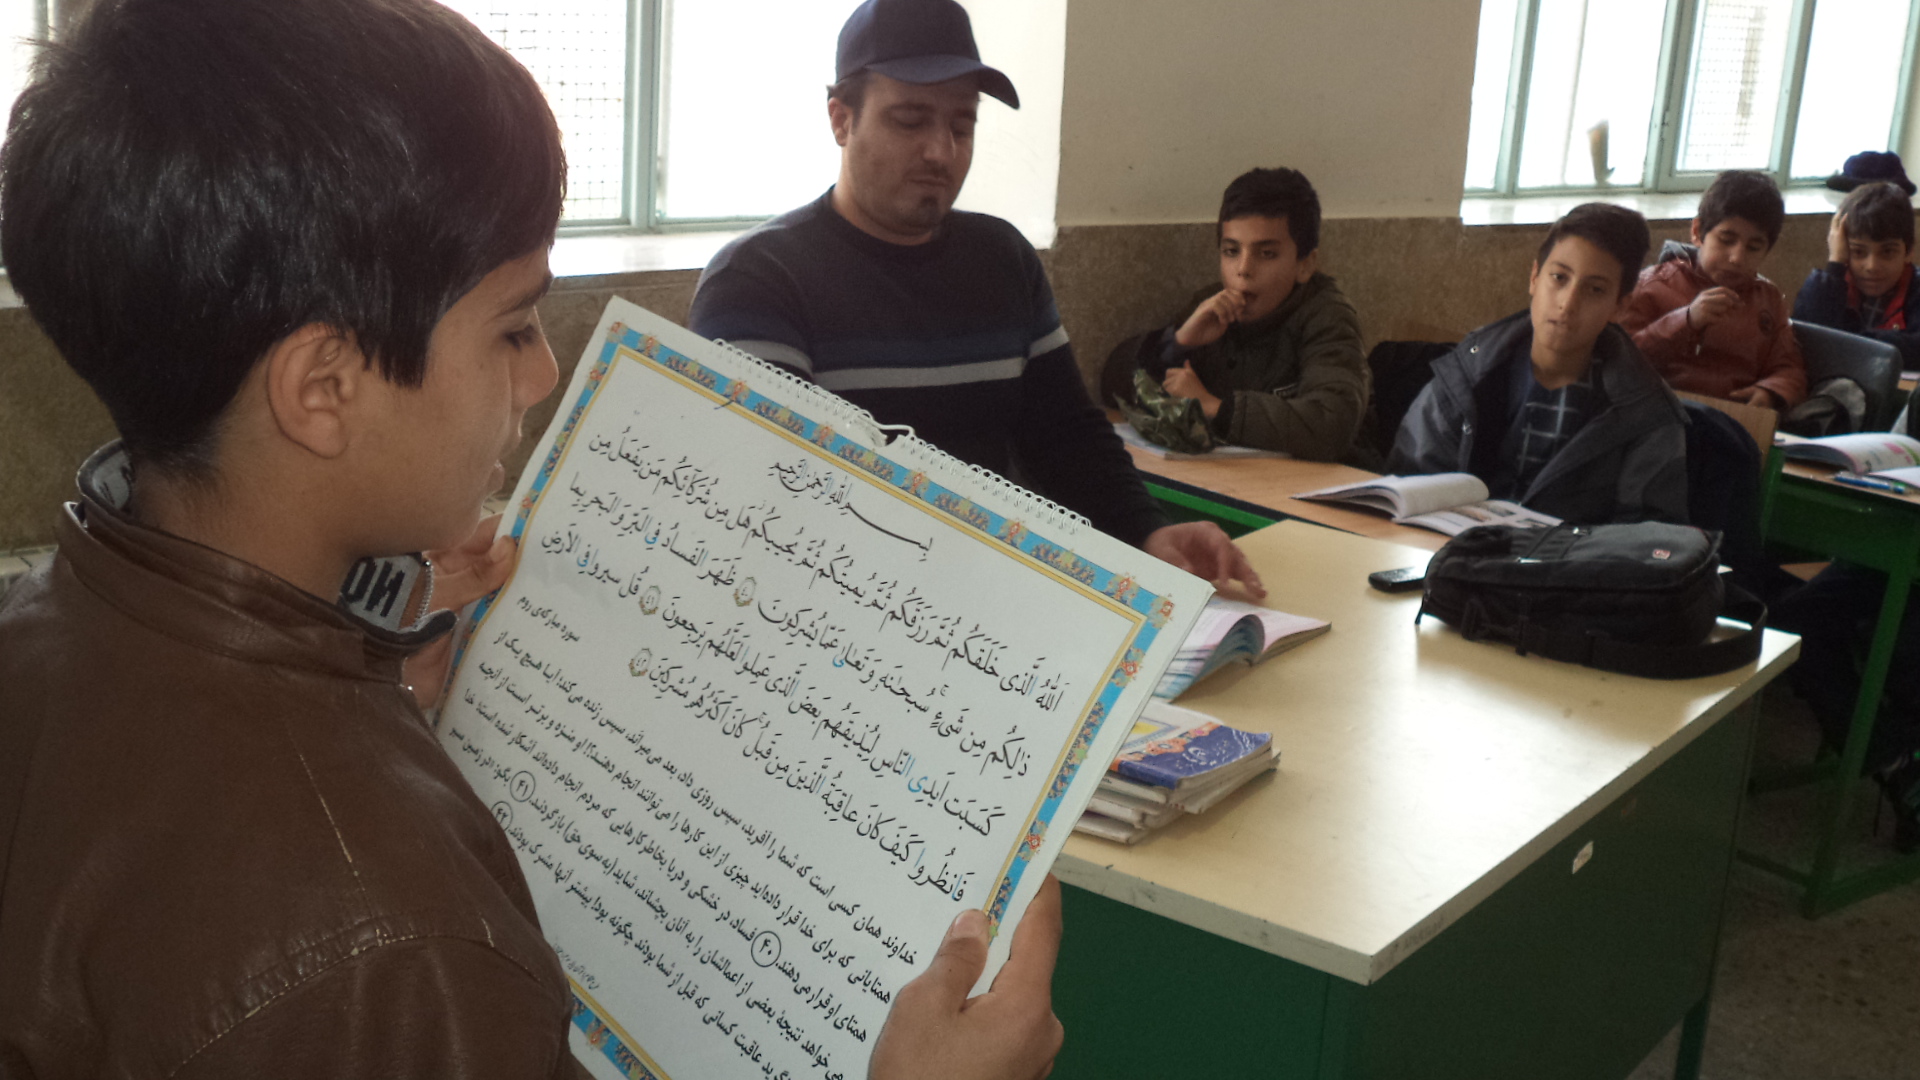 بسم الله الرحمن الرحیم
اَللّٰهُ الَّذی خَلَقَکُم ثُمَّ رَزَقَکُم ثُمَّ یُمیتُکُم ثُمَّ یُحییکُم هَل مِن شُرَکائِکُم مَن یَفعَلُ مِن
ذٰلِکُم مِن شَیءٍ سُبحانَهُ وَ تَعالیٰ عَمّا یُشرِکونَ ﴿٤٠﴾ ظَهَرَ الفَسادُ فِی البَرِّ وَ البَحرِ بِما
کَسَبَت اَیدِی النّاسِ لِیُذیقَهُم بَعضَ الَّذی عَمِلوا لَعَلَّهُم یَرجِعونَ ﴿٤١﴾ قُل سیروا فِی الاَرضِ
فَانظُروا کَیفَ کانَ عاقِبَةُ الَّذینَ مِن قَبلُ کانَ اَکثَرُهُم مُشرِکینَ ﴿٤٢﴾
سوره مبارکه‌ی روم
خداوند همان کسی است که شما را آفرید، سپس روزی داد، بعد می‌میراند، سپس زنده می‌کند؛ آیا هیچ یک از
همتایانی که برای خدا قرار داده‌اید چیزی از این کارها را می‌توانند انجام دهند؟! او منزه و برتر است از آنچه
همتای او قرار می‌دهند. (۴۰) فساد، در خشکی و دریا بخاطر کارهایی که مردم انجام داده‌اند آشکار شده است؛ خدا
می‌خواهد نتیجهٔ بعضی از اعمالشان را به آنان بچشاند، شاید (به سوی حق) بازگردند. (۴۱) بگو: «در زمین سیر
عاقبت کسانی که قبل از شما بودند چگونه بود؛ بیشتر آنها مشرک بودند. (۴۲)
ON